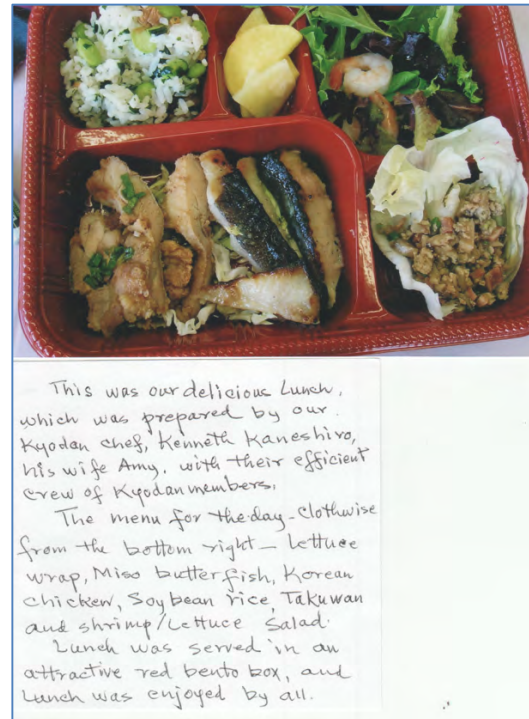 This was our delicious Lunch,
which was prepared by our
Kyodan chef, Kenneth Kaneshiro,
his wife Amy, with their efficient
crew of Kyodan members.
The menu for the day - Clothwise
from the bottom right - Lettuce
wrap, Miso butterfish, Korean
chicken, Soybean rice, Takuwan
and shrimp/Lettuce Salad.
Lunch was served in an
attractive red bento box, and
Lunch was enjoyed by all.